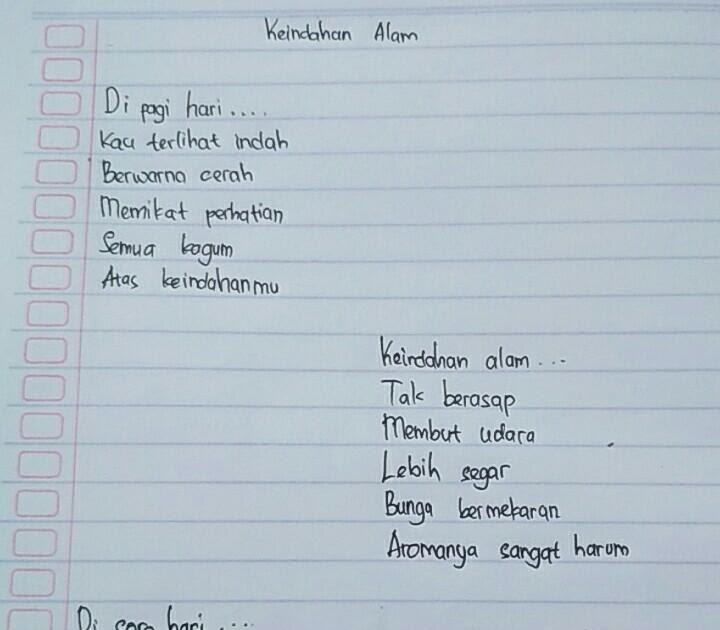 Keindahan Alam
Di pagi hari....
Kau terlihat indah
Berwarna cerah
Memikat perhatian
Semua kagum
Atas keindahanmu
Keindahan alam...
Tak berasap
Membut udara
Lebih segar
Bunga bermekaran
Aromanya sangat harum
Di hari...